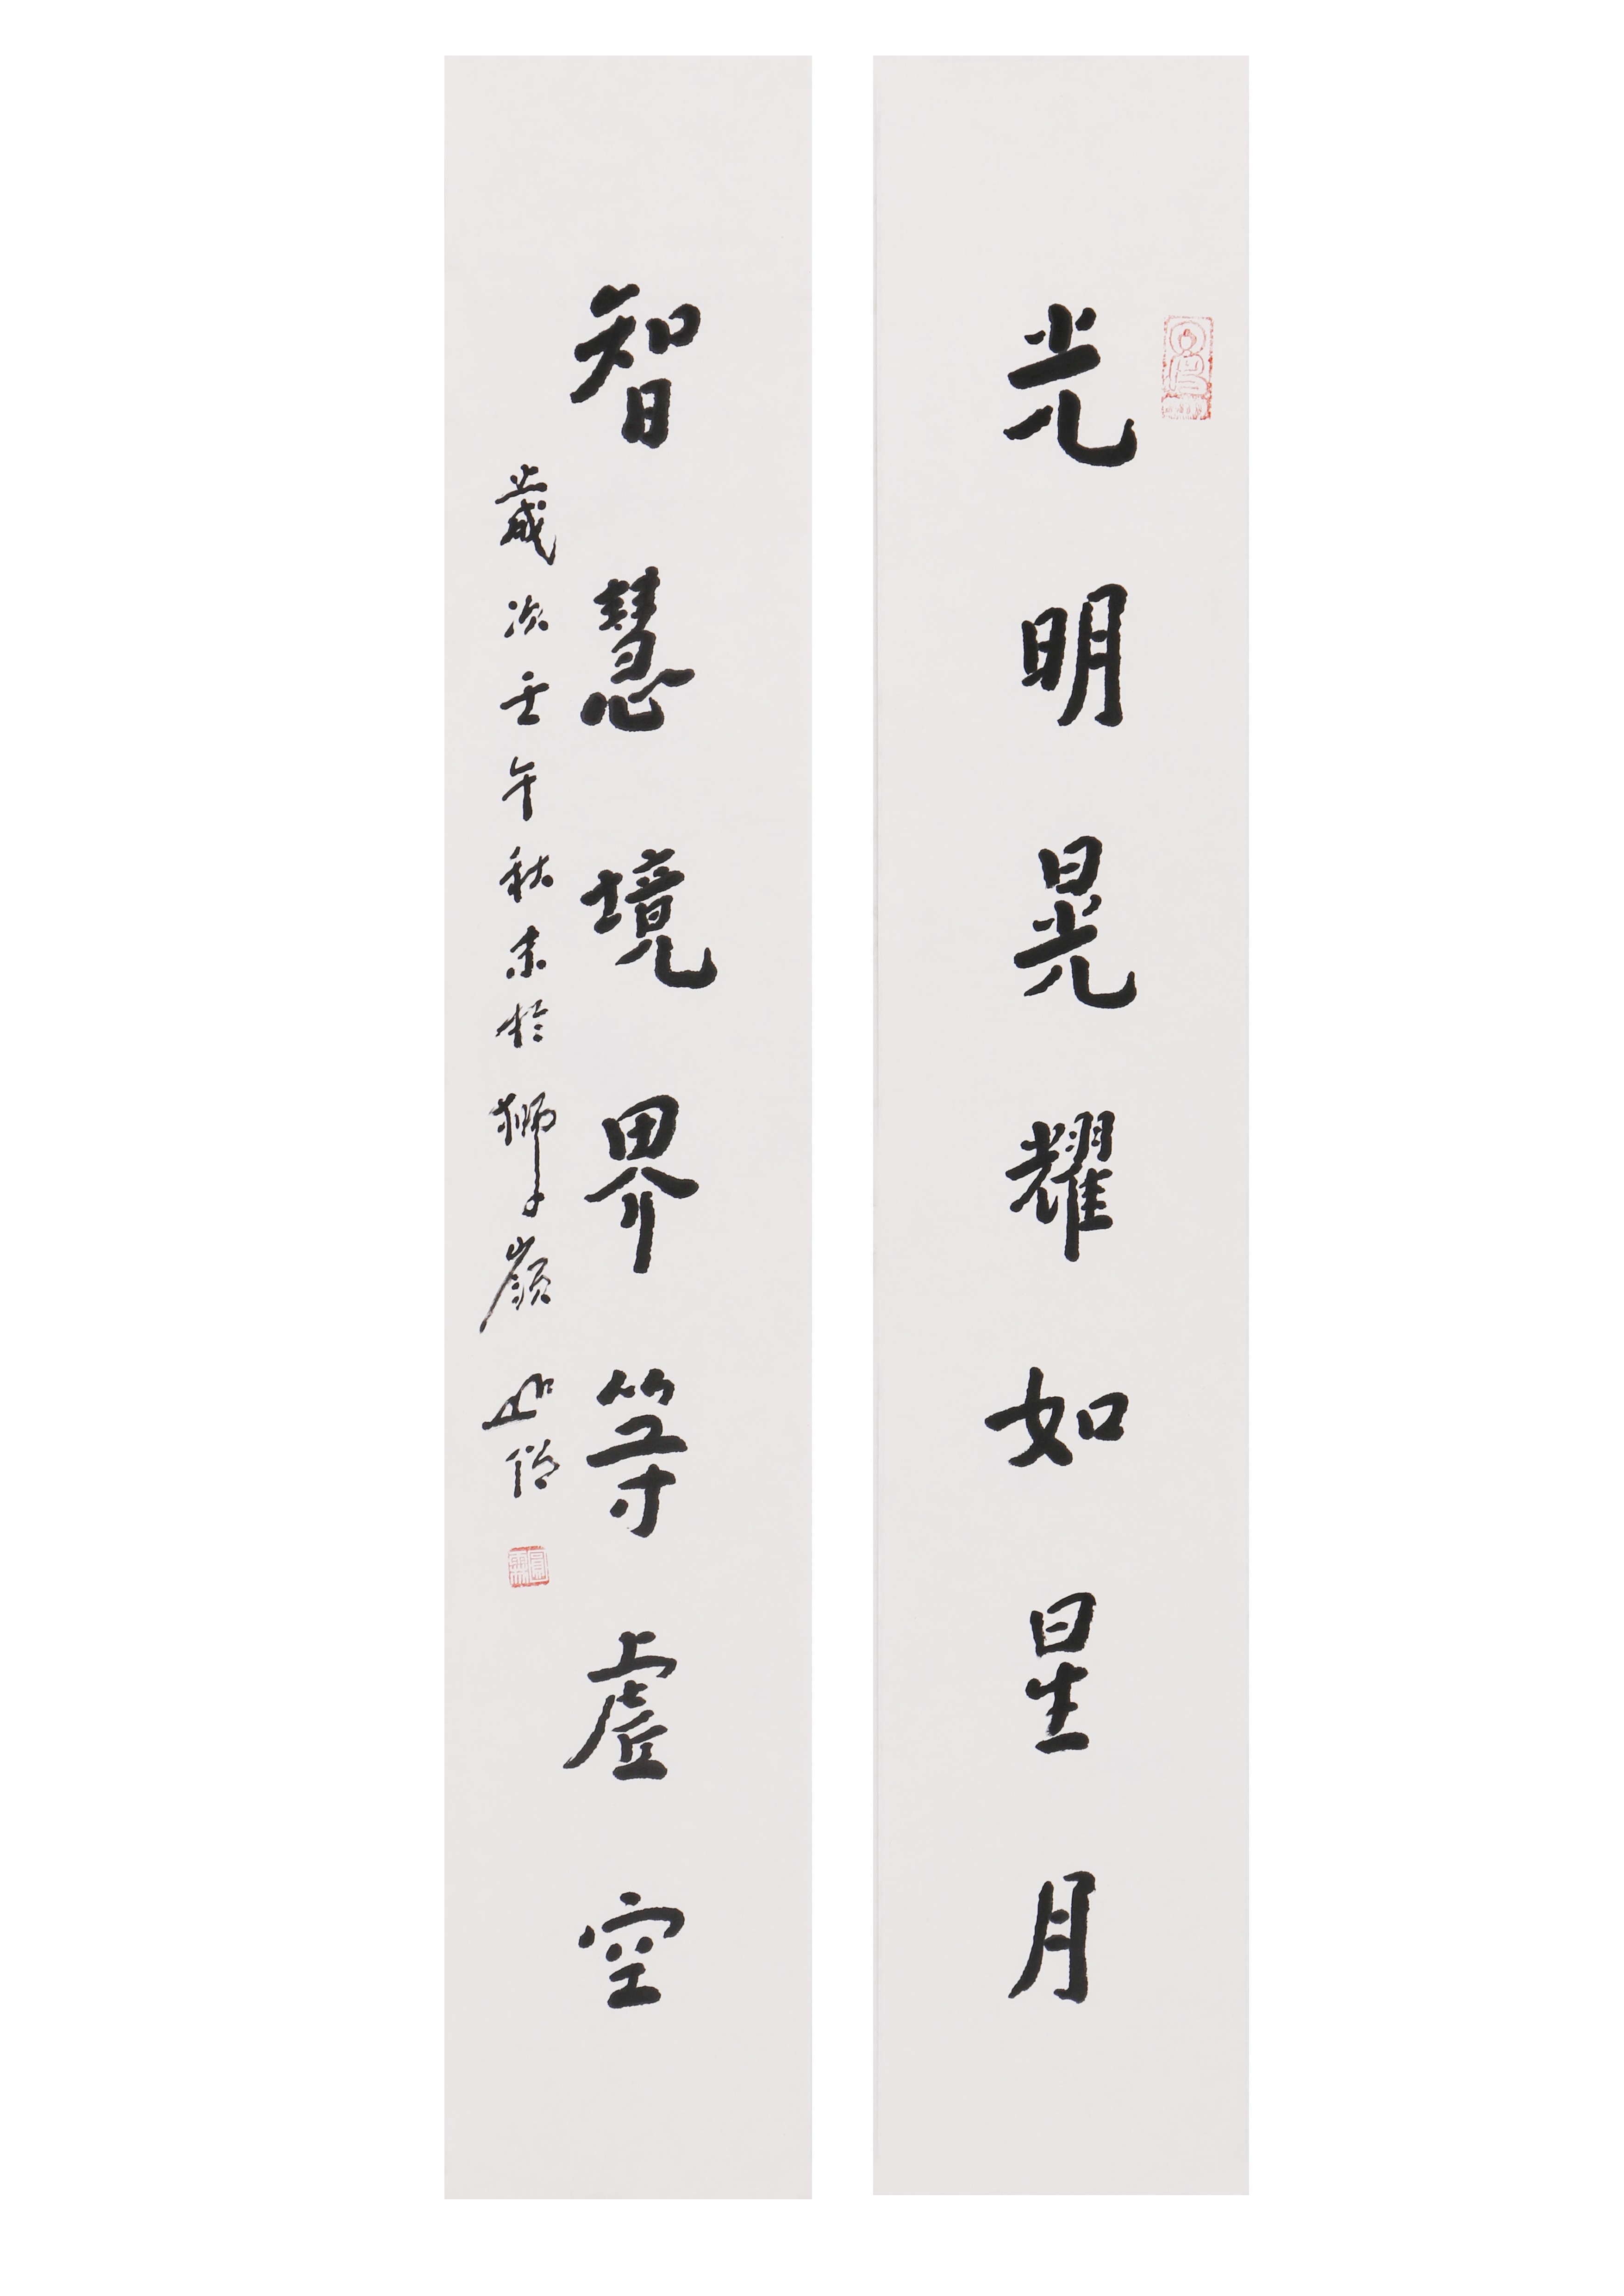 光明晃耀如星月
智慧境界等虛空
歲次壬午秋末於獅子嶺